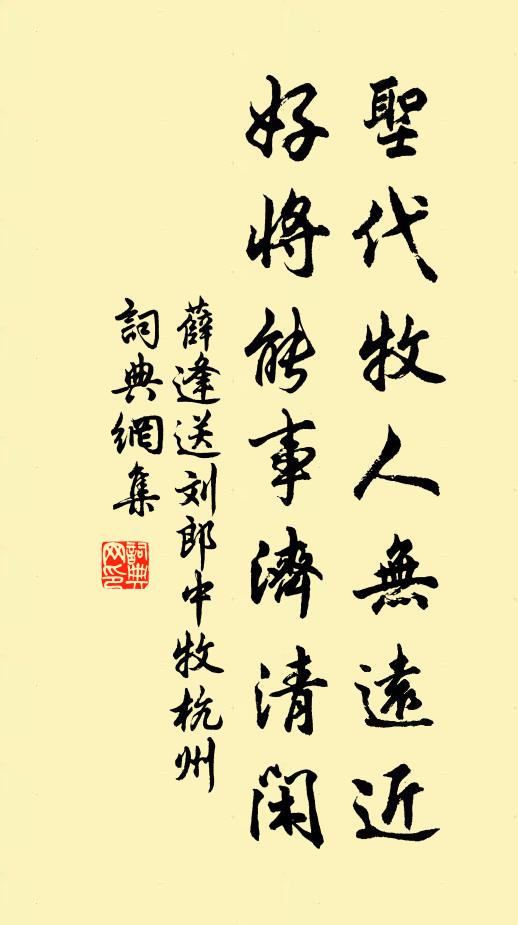 聖代牧人無遠近
好將能事濟清閑
薛逢送刘郎中牧杭州
詞典網集
詞典
网印